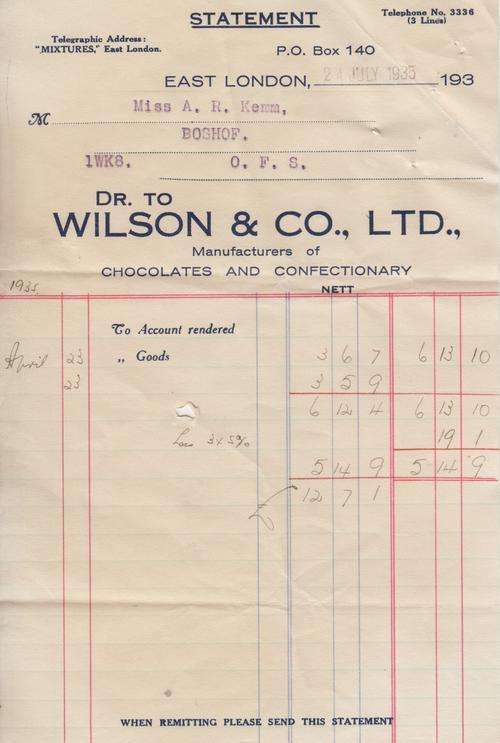 STATEMENT
Telephone No. 3336
(3 Lines)
Telegraphic Address:
"MIXTURES," East London.
P.O. Box 140
EAST LONDON, 24 JULY 1935 193
M Miss A. R. Kemm,
BOSHOF.
1WK8. O. F. S.
DR. TO
WILSON & CO., LTD.,
Manufacturers of
CHOCOLATES AND CONFECTIONARY
1935 NETT
To Account rendered
April 23 „ Goods 3 6 7 6 13 10
23 3 5 9
6 12 4 6 13 10
Less 3 x 5% 19 1
5 14 9 5 14 9
£ 12 7 1
WHEN REMITTING PLEASE SEND THIS STATEMENT